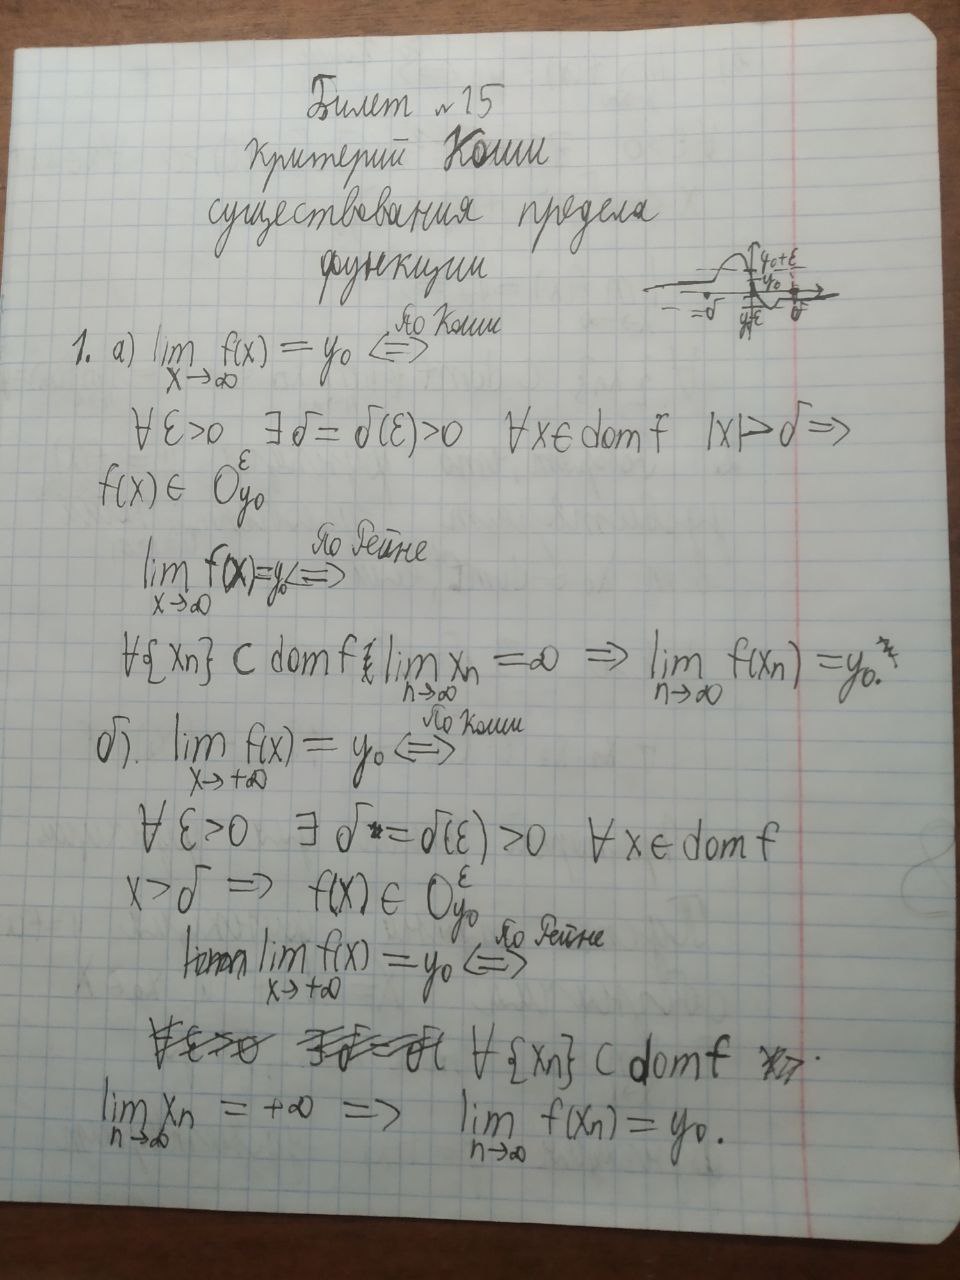 Билет №15
Критерий Коши
существования предела
функции
y₀+ε
y₀
-δ
y₀-ε
δ
1. а) lim f(x) = y₀ <=> По Коши
x→∞
∀ε>0 ∃δ = δ(ε)>0 ∀x∈domf |x|>δ =>
f(x) ∈ O^ε_y₀
lim f(x)=y₀ <=> По Гейне
x→∞
∀{xn} ⊂ domf lim xn = ∞ => lim f(xn) = y₀.
n→∞ n→∞
б). lim f(x) = y₀ <=> По Коши
x→+∞
∀ε>0 ∃δ = δ(ε)>0 ∀x∈domf
x>δ => f(x) ∈ O^ε_y₀
lim f(x) = y₀ <=> По Гейне
x→+∞
∀ε>0 ∃δ=δ( ∀{xn} ⊂ domf
lim xn = +∞ => lim f(xn) = y₀.
n→∞ n→∞